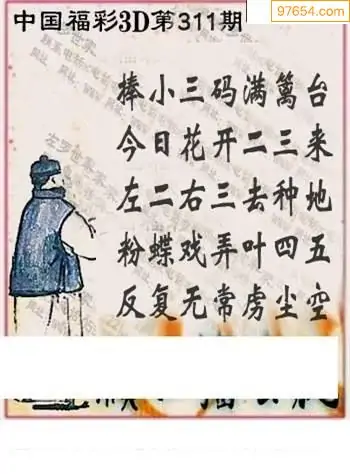 97654.com
中国福彩3D第311期
捧小三码满篱台
今日花开二三来
左二右三去种地
粉蝶戏弄叶四五
反复无常虏尘空